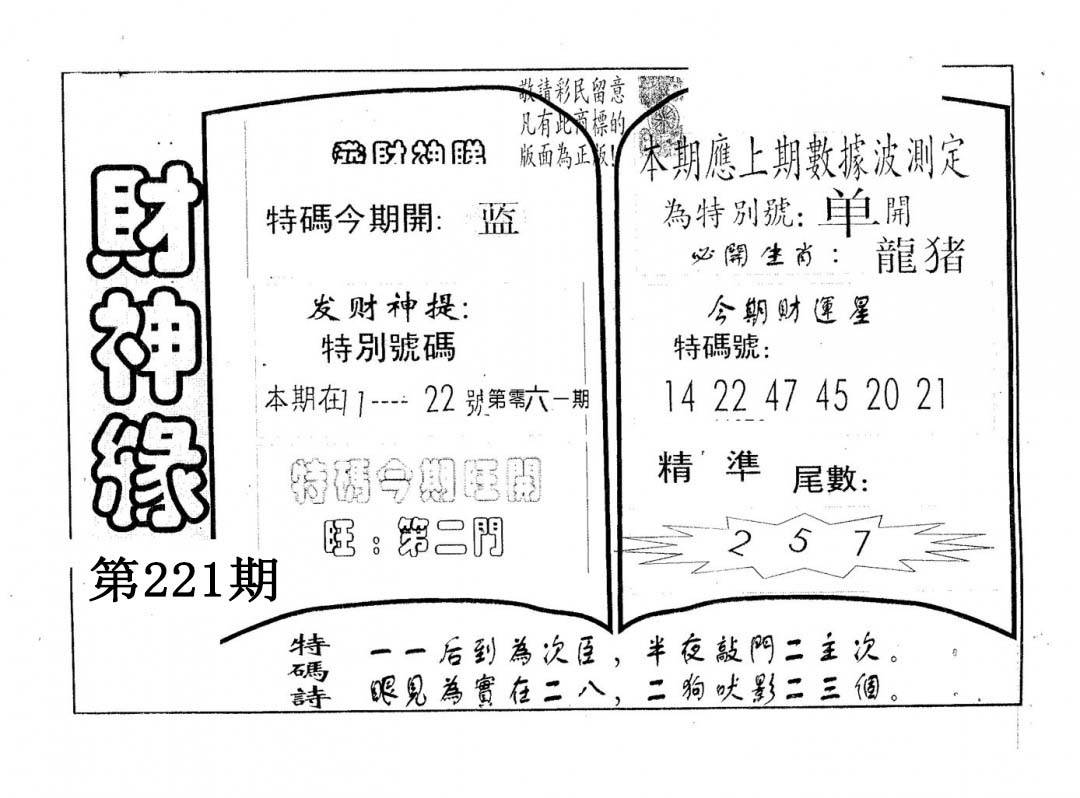 財神緣
第221期
敬請彩民留意
凡有此商標的
版面為正版!
特碼今期開: 蓝
发财神提:
特別號碼
本期在11---- 22 號第零六一期
特碼今期旺開
旺:第二門
本期應上期數據波測定
為特別號: 单開
必開生肖: 龍猪
今期財運星
特碼號:
14 22 47 45 20 21
精 準 尾數:
2 5 7
特碼詩
一一后到為次臣,半夜敲門二主次。
眼見為實在二八,二狗吠影二三個。